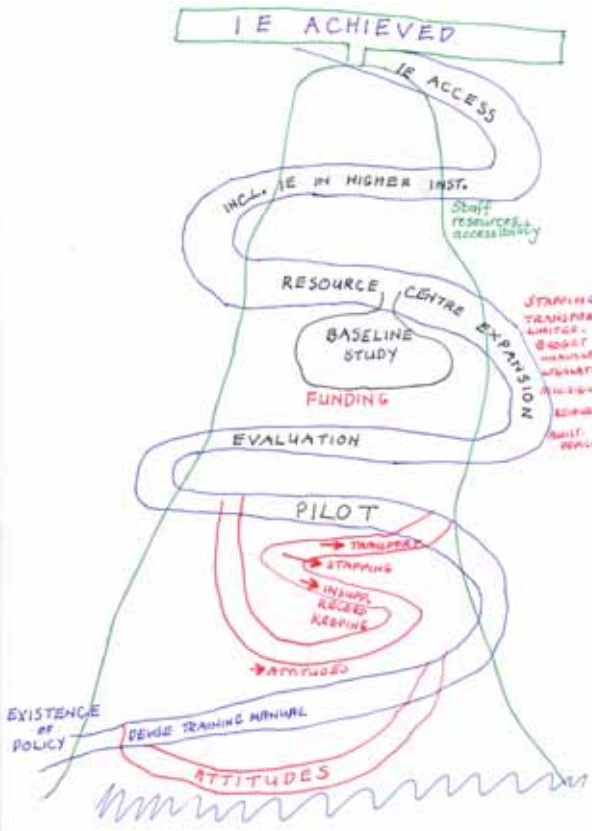 IE ACHIEVED
IE ACCESS
INCL. IE IN HIGHER INST.
Staff
resources
accessibility
RESOURCE CENTRE EXPANSION
BASELINE
STUDY
FUNDING
STAFFING
TRANSPORT
LIMITED
BUDGET
EVALUATION
PILOT
→ TRANSPORT
→ STAFFING
→ INSUFF.
RECORD
KEEPING
→ ATTITUDES
EXISTENCE
OF
POLICY
DEVISE TRAINING MANUAL
ATTITUDES